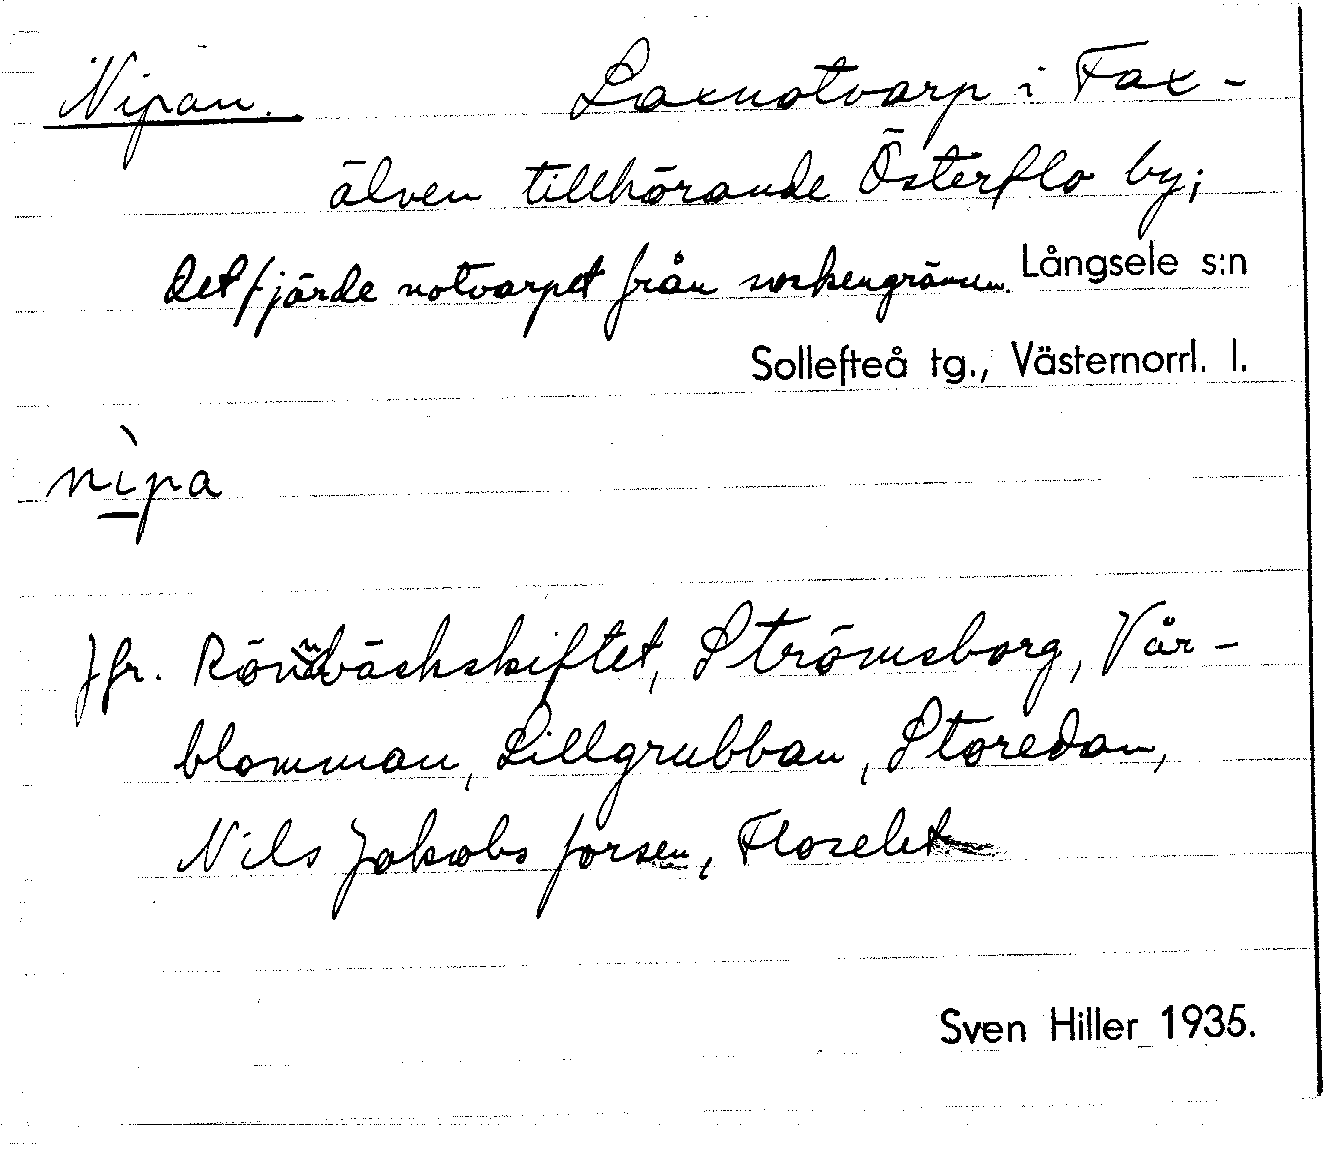 Nipan. Laxnotvarp i Fax-
älven tillhörande Österflo by;
det fjärde notvarpet från sockengränsen. Långsele s:n
Sollefteå tg., Västernorrl. l.
nìpa
Jfr. Rönnbäckskiftet, Strömsborg, Vår-
blomman, Lillgrubban, Storedan,
Nils Jakobs forsen, Floselet
Sven Hiller 1935.